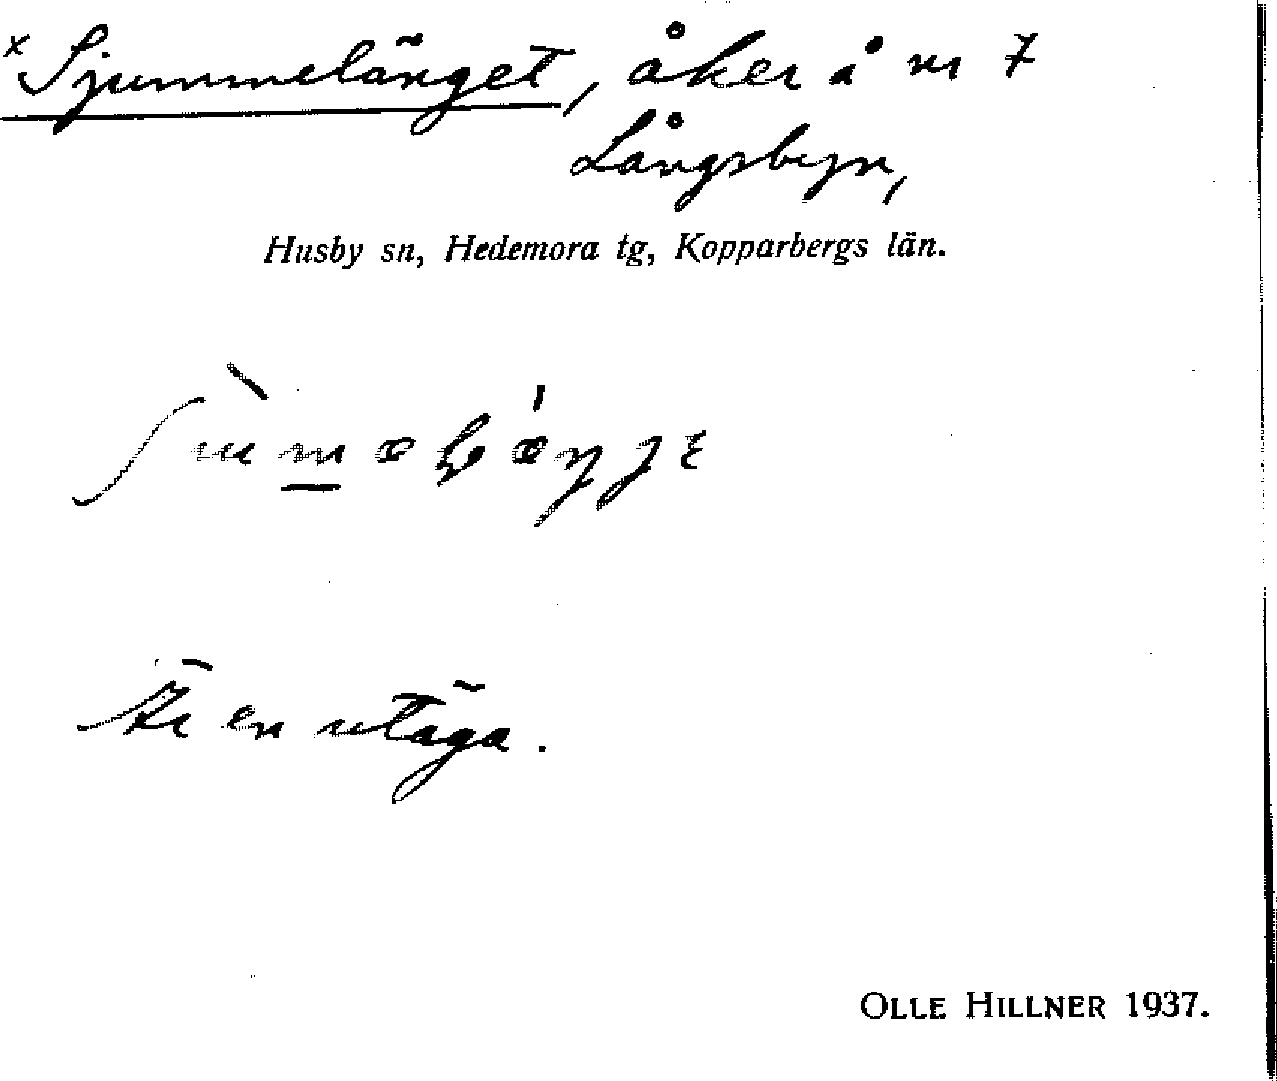 x Sjummelänget, åker å nr 7
Långsbyn,
Husby sn, Hedemora tg, Kopparbergs län.
Är en utäga.
OLLE HILLNER 1937.